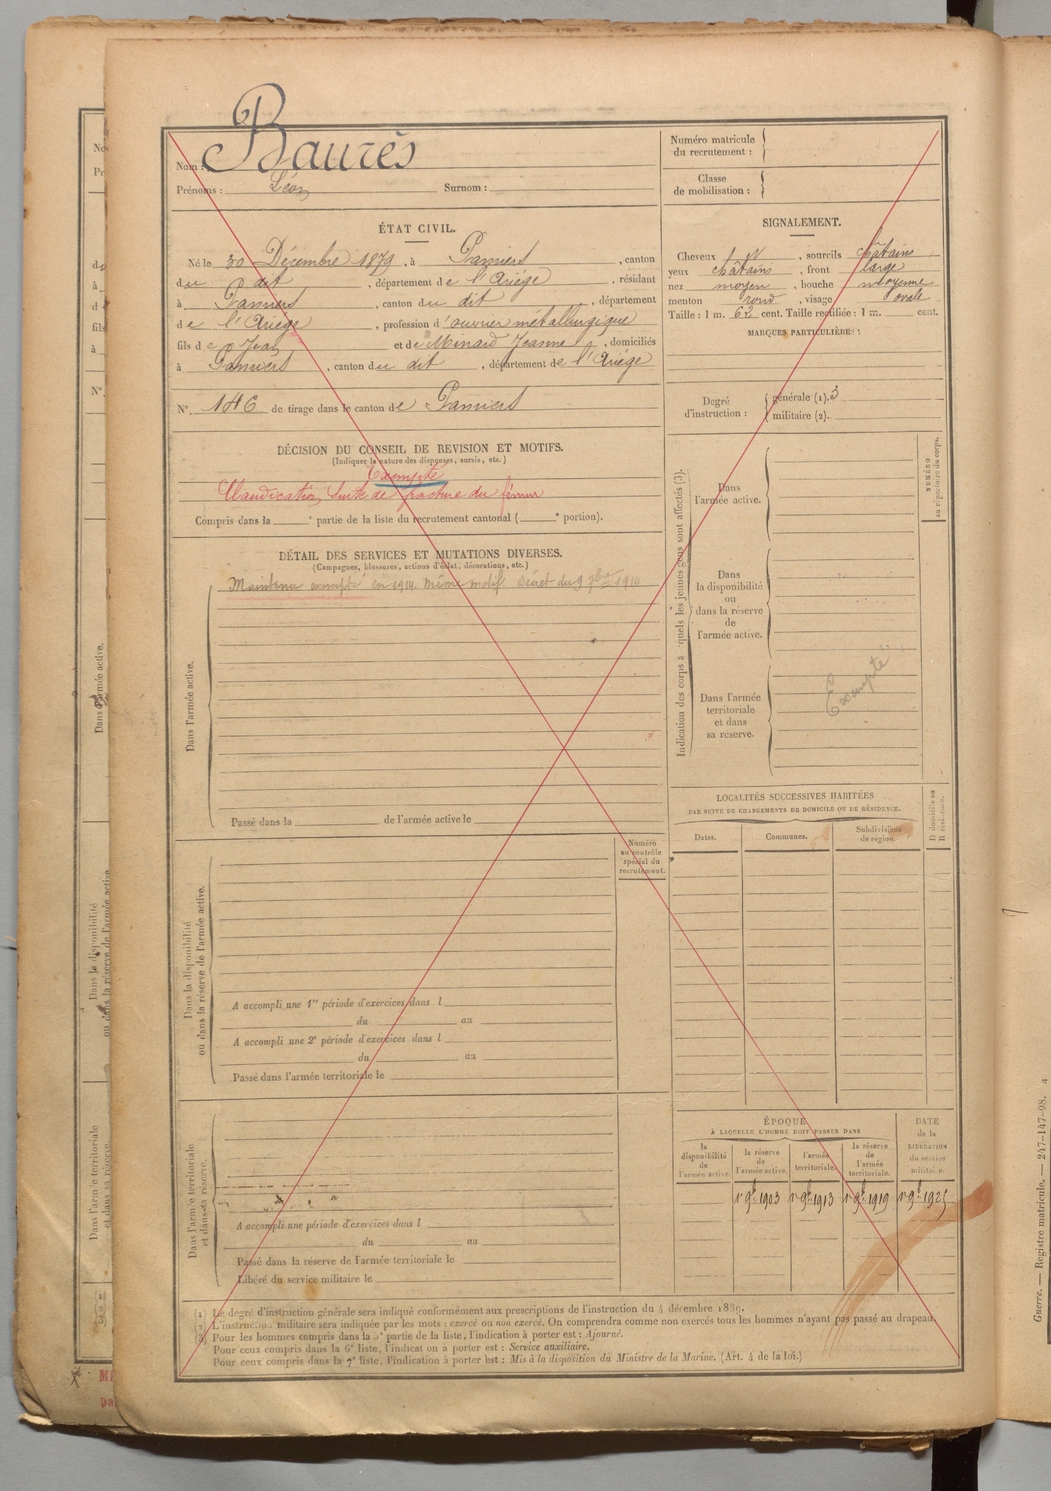 Baurès
Nom :
Prénoms : Léon Surnom :
Numéro matricule
du recrutement :
Classe
de mobilisation :
ÉTAT CIVIL.
Né le 30 Décembre 1879, à Pamiers, canton
du dit, département de l'Ariège, résidant
à Pamiers, canton du dit, département
de l'Ariège, profession d'ouvrier métallurgique
fils de Jean et de Minard Jeanne, domiciliés
à Pamiers, canton du dit, département de l'Ariège
N° 146 de tirage dans le canton de Pamiers
SIGNALEMENT.
Cheveux, sourcils châtains
yeux châtains, front large
nez moyen, bouche moyenne
menton rond, visage ovale
Taille : 1 m. 62 cent. Taille rectifiée : 1 m. cent.
MARQUES PARTICULIÈRES :
Degré
d'instruction :
générale (1). 3
militaire (2).
DÉCISION DU CONSEIL DE REVISION ET MOTIFS.
(Indiquer la nature des dispenses, sursis, etc.)
Exempté
Claudication suite de fracture du fémur
Compris dans la e partie de la liste du recrutement cantonal ( e portion).
DÉTAIL DES SERVICES ET MUTATIONS DIVERSES.
(Campagnes, blessures, actions d'éclat, décorations, etc.)
Maintenu exempté en 1914. même motif. Décret du 9 7bre 1914
Dans l'armée active.
Passé dans la de l'armée active le
Indication des corps auxquels les jeunes gens sont affectés (3).
NUMÉRO
au répertoire du corps.
Dans
l'armée active.
Dans
la disponibilité
ou
dans la réserve
de
l'armée active.
Dans l'armée
territoriale
et dans
sa réserve.
Exempté
LOCALITÉS SUCCESSIVES HABITÉES
PAR SUITE DE CHANGEMENTS DE DOMICILE OU DE RÉSIDENCE.
Dates.
Communes.
Subdivisions
de région.
D domicile ou
R résidence.
Numéro
au contrôle
spécial du
recrutement.
Dans la disponibilité
ou dans la réserve de l'armée active.
A accompli une 1re période d'exercices dans l
du au
A accompli une 2e période d'exercices dans l
du au
Passé dans l'armée territoriale le
Dans l'armée territoriale
et dans sa réserve.
A accompli une période d'exercices dans l
du au
Passé dans la réserve de l'armée territoriale le
Libéré du service militaire le
ÉPOQUE
À LAQUELLE L'HOMME DOIT PASSER DANS
la
disponibilité
de
l'armée active.
la réserve
de
l'armée active.
l'armée
territoriale.
la réserve
de
l'armée
territoriale.
DATE
de la
LIBÉRATION
du service
militaire.
1er 9bre 1903 1er 9bre 1913 1er 9bre 1919 1er 9bre 1925
(1) Le degré d'instruction générale sera indiqué conformément aux prescriptions de l'instruction du 4 décembre 1889.
(2) L'instruction militaire sera indiquée par les mots : exercé ou non exercé. On comprendra comme non exercés tous les hommes n'ayant pas passé au drapeau.
(3) Pour les hommes compris dans la 5e partie de la liste, l'indication à porter est : Ajourné.
Pour ceux compris dans la 6e liste, l'indication à porter est : Service auxiliaire.
Pour ceux compris dans la 7e liste, l'indication à porter est : Mis à la disposition du Ministre de la Marine. (Art. 4 de la loi.)
Guerre. — Registre matricule. — 247-147-98.